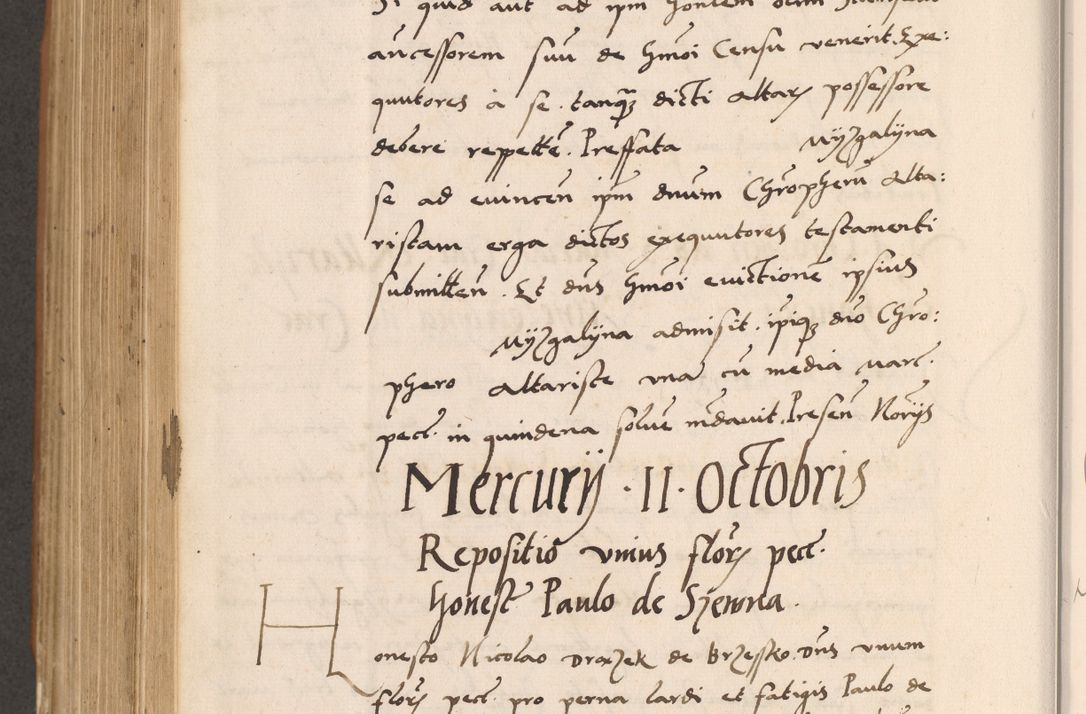 Si quid aut ad ipm
aucessorem suu de hmoi Censu venerit. Exe:
quutores a se. tanq dicti Altarz possessore
debere reppettē. Preffata Nyzgalijna
se ad evincen ipm dnum Chropherū Alta:
ristam erga dictos exequutores testamenti
submitten. Et dns hmoi evictionē ipsius
Nyzgalijna admisit. ipiqz dno Chro:
phero Altariste una cū media marc.
pecc. in quindena solve mdavit. Presen Norijs
Mercurij · 11 · Octobris
Repositio unius florz pecc.
honest Paulo de Sjenna.
Honesto Nicolao Drozek de Brzessko. Dns unum
florz pecc. pro perna lardi et fatigis Paulo de